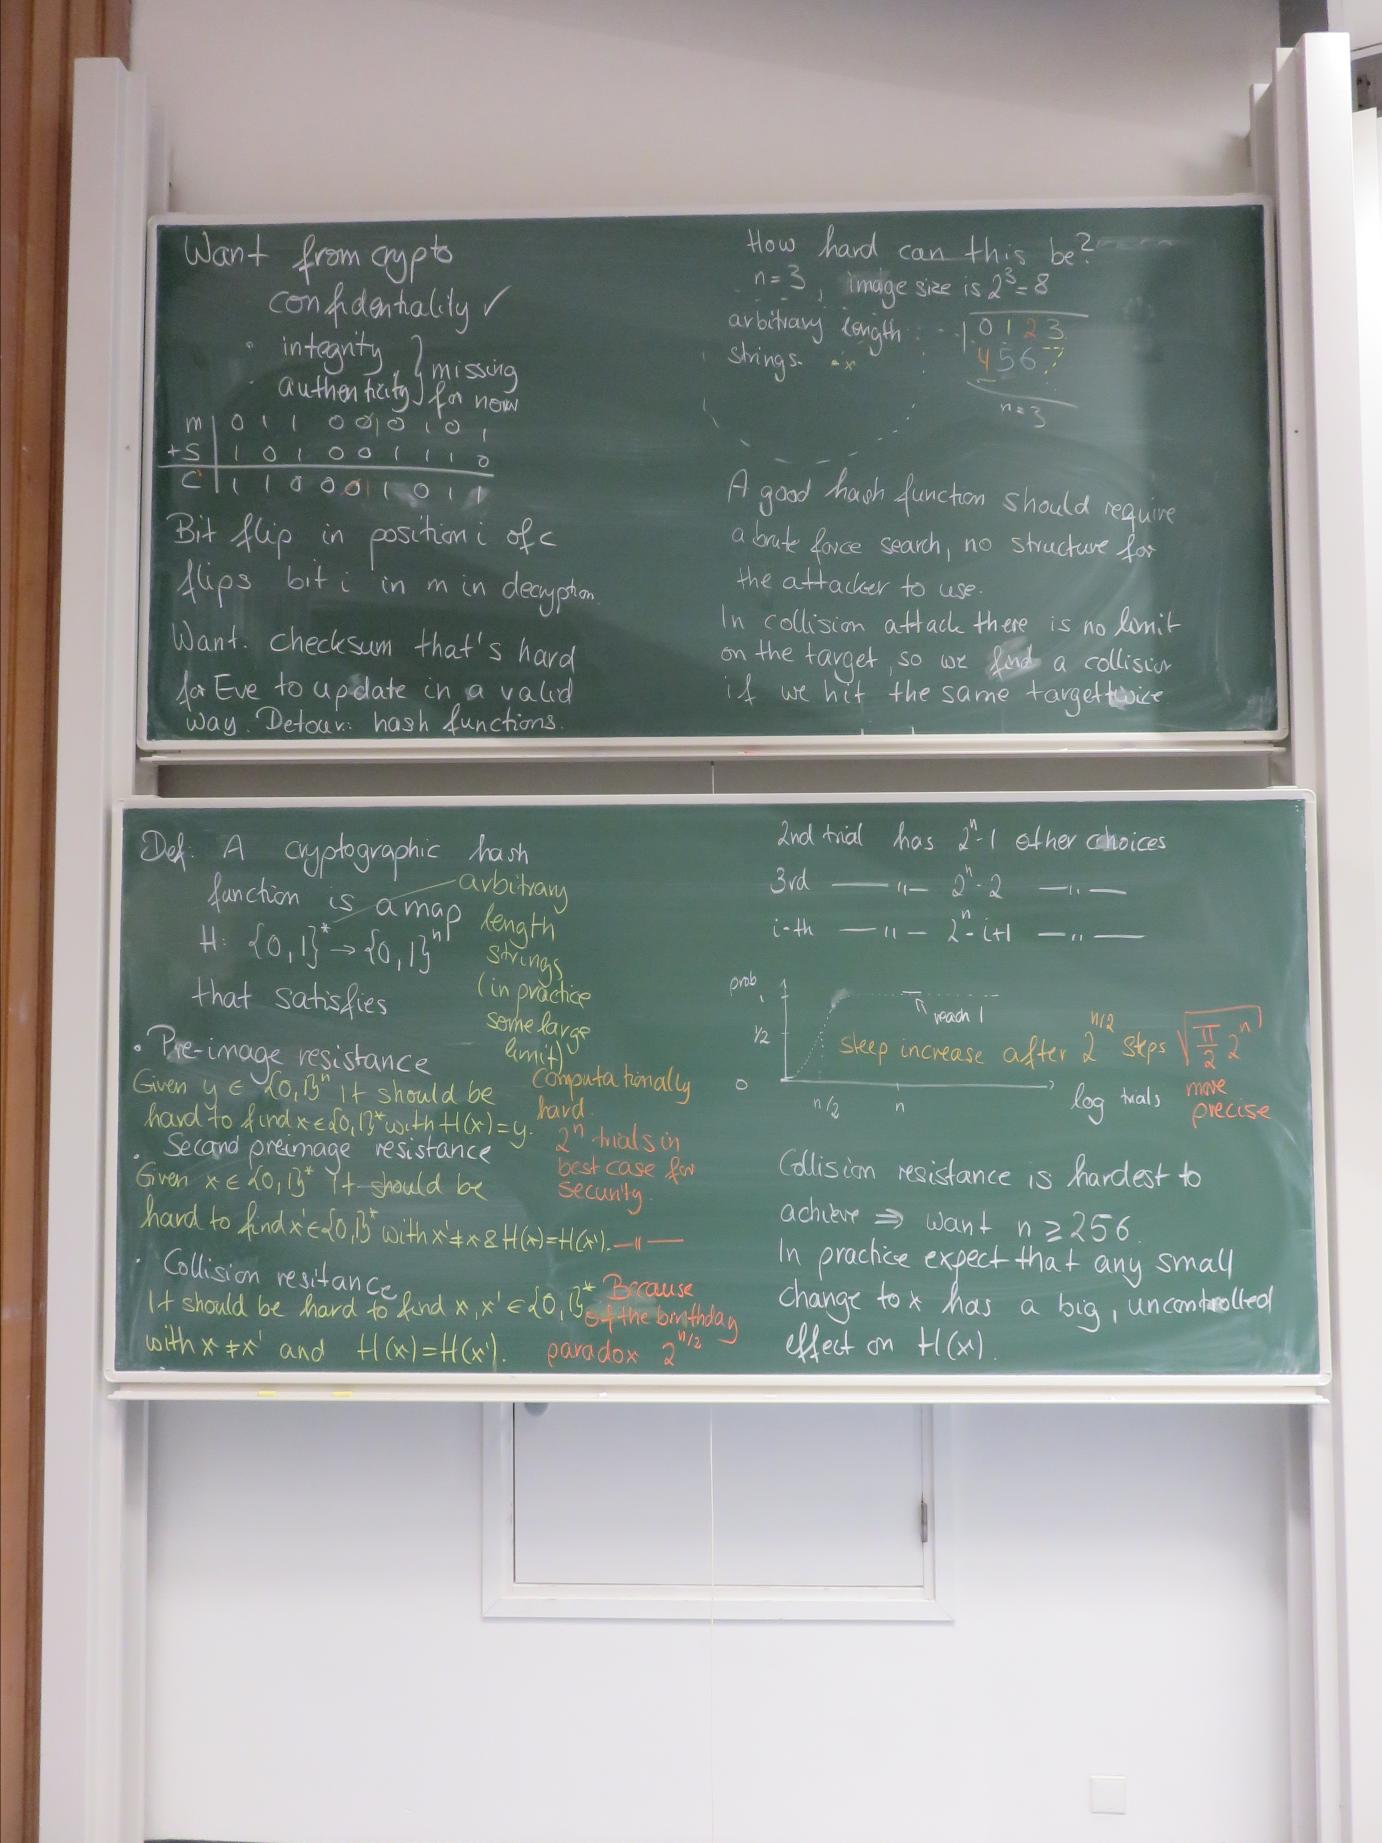 Want from crypto
confidentiality ✓
· integrity } missing
· authenticity } for now
m | 0 1 1 0 0 1 0 1
+S | 1 0 1 0 0 1 1 1 0
C | 1 1 0 0 0 1 0 1 1
Bit flip in position i of c
flips bit i in m in decryption.
Want. checksum that's hard
for Eve to update in a valid
way. Detour: hash functions.
How hard can this be?
n = 3, image size is 2³ = 8
arbitrary length
strings.
0 1 2 3
4 5 6 7
n = 3
A good hash function should require
a brute force search, no structure for
the attacker to use.
In collision attack there is no limit
on the target, so we find a collision
if we hit the same target twice
Def: A cryptographic hash
function is a map
H: {0,1}* → {0,1}ⁿ
that satisfies
arbitrary
length
strings
(in practice
some large
limit)
· Pre-image resistance
Given y ∈ {0,1}ⁿ it should be
hard to find x ∈ {0,1}* with H(x) = y.
computationally
hard.
· Second preimage resistance
Given x ∈ {0,1}* it should be
hard to find x' ∈ {0,1}* with x' ≠ x & H(x) = H(x'). —"—
2ⁿ trials in
best case for
security.
· Collision resitance
It should be hard to find x, x' ∈ {0,1}*
with x ≠ x' and H(x) = H(x').
Because
of the birthday
paradox 2^{n/2}
2nd trial has 2ⁿ-1 other choices
3rd —"— 2ⁿ-2 —"—
i-th —"— 2ⁿ-i+1 —"—
prob
1
1/2
0
reach 1
steep increase after 2^{n/2} steps √(π/2 2ⁿ)
more
precise
n/2 n log trials
Collision resistance is hardest to
achieve ⇒ want n ≥ 256.
In practice expect that any small
change to x has a big, uncontrolled
effect on H(x).